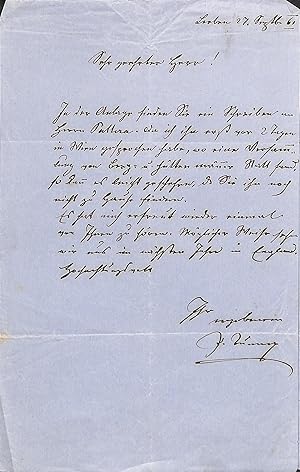 Leoben 27. Septbr 61
Sehr geehrter Herr!
In der Anlage finden Sie ein Schreiben an
Herrn . Da ich ihn erst vor 2 Tagen
in Wien gesprochen habe, wo eine Versamm
lung von Berg- u Hüttenmänner Statt fand,
so kann es leicht geschehen, daß Sie ihn noch
nicht zu Hause finden.
Es hat mich erfreut wieder einmal
von Ihnen zu hören. Möglicher Weise sehen
wir uns im nächsten Jahre in England.
Hochachtungsvoll
Ihr
ergebener
P. Tunner